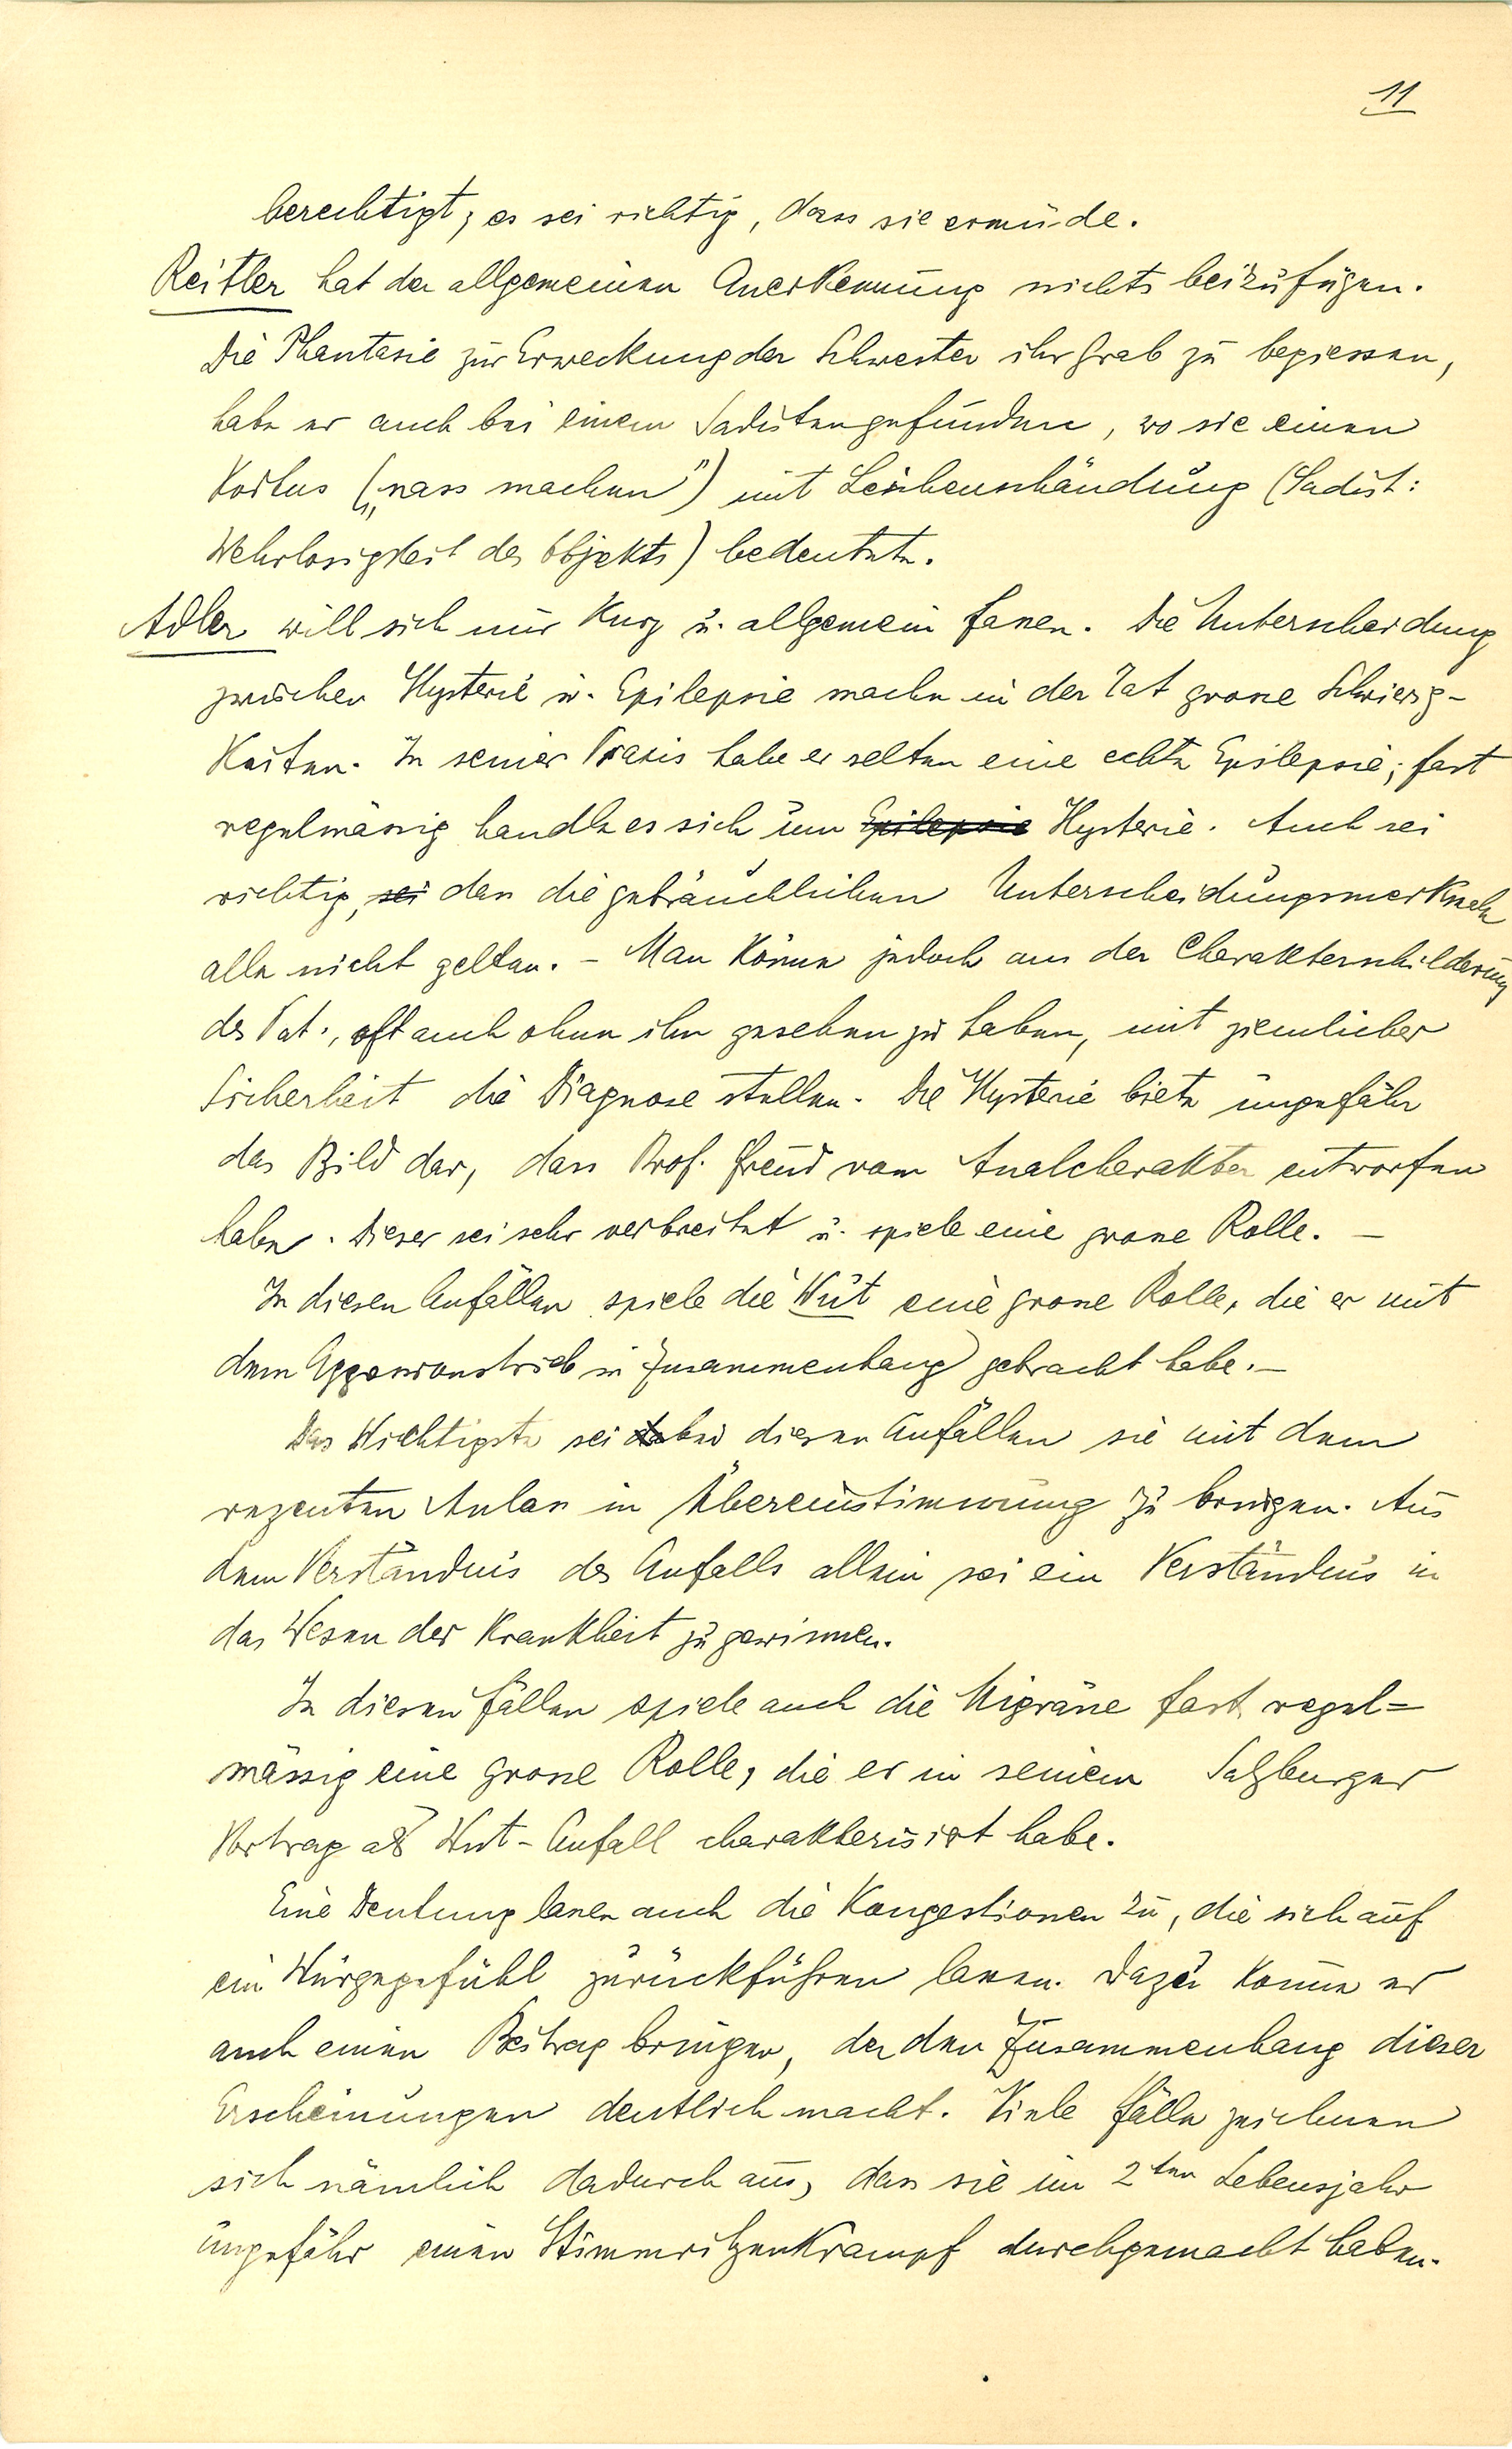 11
berechtigt; es sei richtig, dass sie ermüde.
Reitler hat der allgemeinen Anerkennung nichts beizufügen.
Die Phantasie zur Erweckung der Schwester ihr Grab zu begiessen,
habe er auch bei einem Sadisten gefunden, wo sie einen
Koitus („nass machen") mit Leichenschändung (Sadist:
Wehrlosigkeit des Objekts) bedeutete.
Adler will sich nur kurz u. allgemein fassen. Die Unterscheidung
zwischen Hysterie u. Epilepsie mache in der Tat grosse Schwierig-
keiten. In seiner Praxis habe er selten eine echte Epilepsie; fast
regelmässig handle es sich um Epilepsie Hysterie. Auch sei
richtig, sei dass die gebräuchlichen Unterscheidungsmerkmale
alle nicht gelten. – Man könne jedoch aus der Charakterschilderung
des Pat., oft auch ohne ihn gesehen zu haben, mit ziemlicher
Sicherheit die Diagnose stellen. Die Hysterie biete ungefähr
das Bild dar, dass Prof. Freud vom Analcharakter entworfen
habe. Dieser sei sehr verbreitet u. spiele eine grosse Rolle. –
In diesen Anfällen spiele die Wut eine grosse Rolle, die er mit
dem Aggressionstrieb in Zusammenhang gebracht habe. –
Das Wichtigste sei da bei diesen Anfällen sie mit dem
rezenten Anlass in Übereinstimmung zu bringen. Aus
dem Verständnis des Anfalls allein sei ein Verständnis in
das Wesen der Krankheit zu gewinnen.
In diesen Fällen spiele auch die Migräne fast regel=
mässig eine grosse Rolle, die er in seinem Salzburger
Vortrag als Wut-Anfall charakterisirt habe.
Eine Deutung lassen auch die Kongestionen zu, die sich auf
ein Würgegefühl zurückführen lassen. Dazu könne er
auch einen Beitrag bringen, der den Zusammenhang dieser
Erscheinungen deutlich macht. Viele Fälle zeichnen
sich nämlich dadurch aus, dass sie im 2ten Lebensjahr
ungefähr einen Stimmritzenkrampf durchgemacht haben.